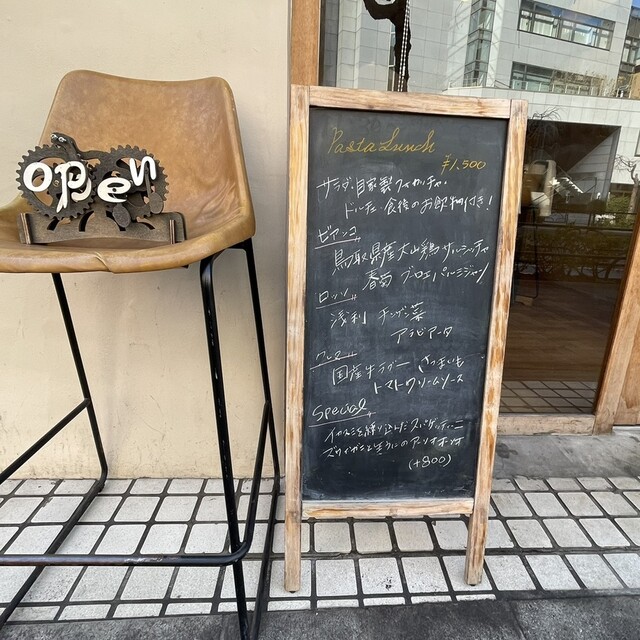 open
Pasta Lunch
¥1.500
サラダ・自家製フォカッチャ・
ドルチェ・食後のお飲物付き!
ビアンコ
鳥取県産大山鶏サルシッチャ
春菊 ブロード パルミジャーノ
ロッソ
浅利 チンゲン菜
アラビアータ
クレマ
国産牛ラグー さつまいも
トマトクリームソース
Special
イカスミを練り込んだスパゲッティーニ
ズワイガニと生うにのアーリオオーリオ
(+800)